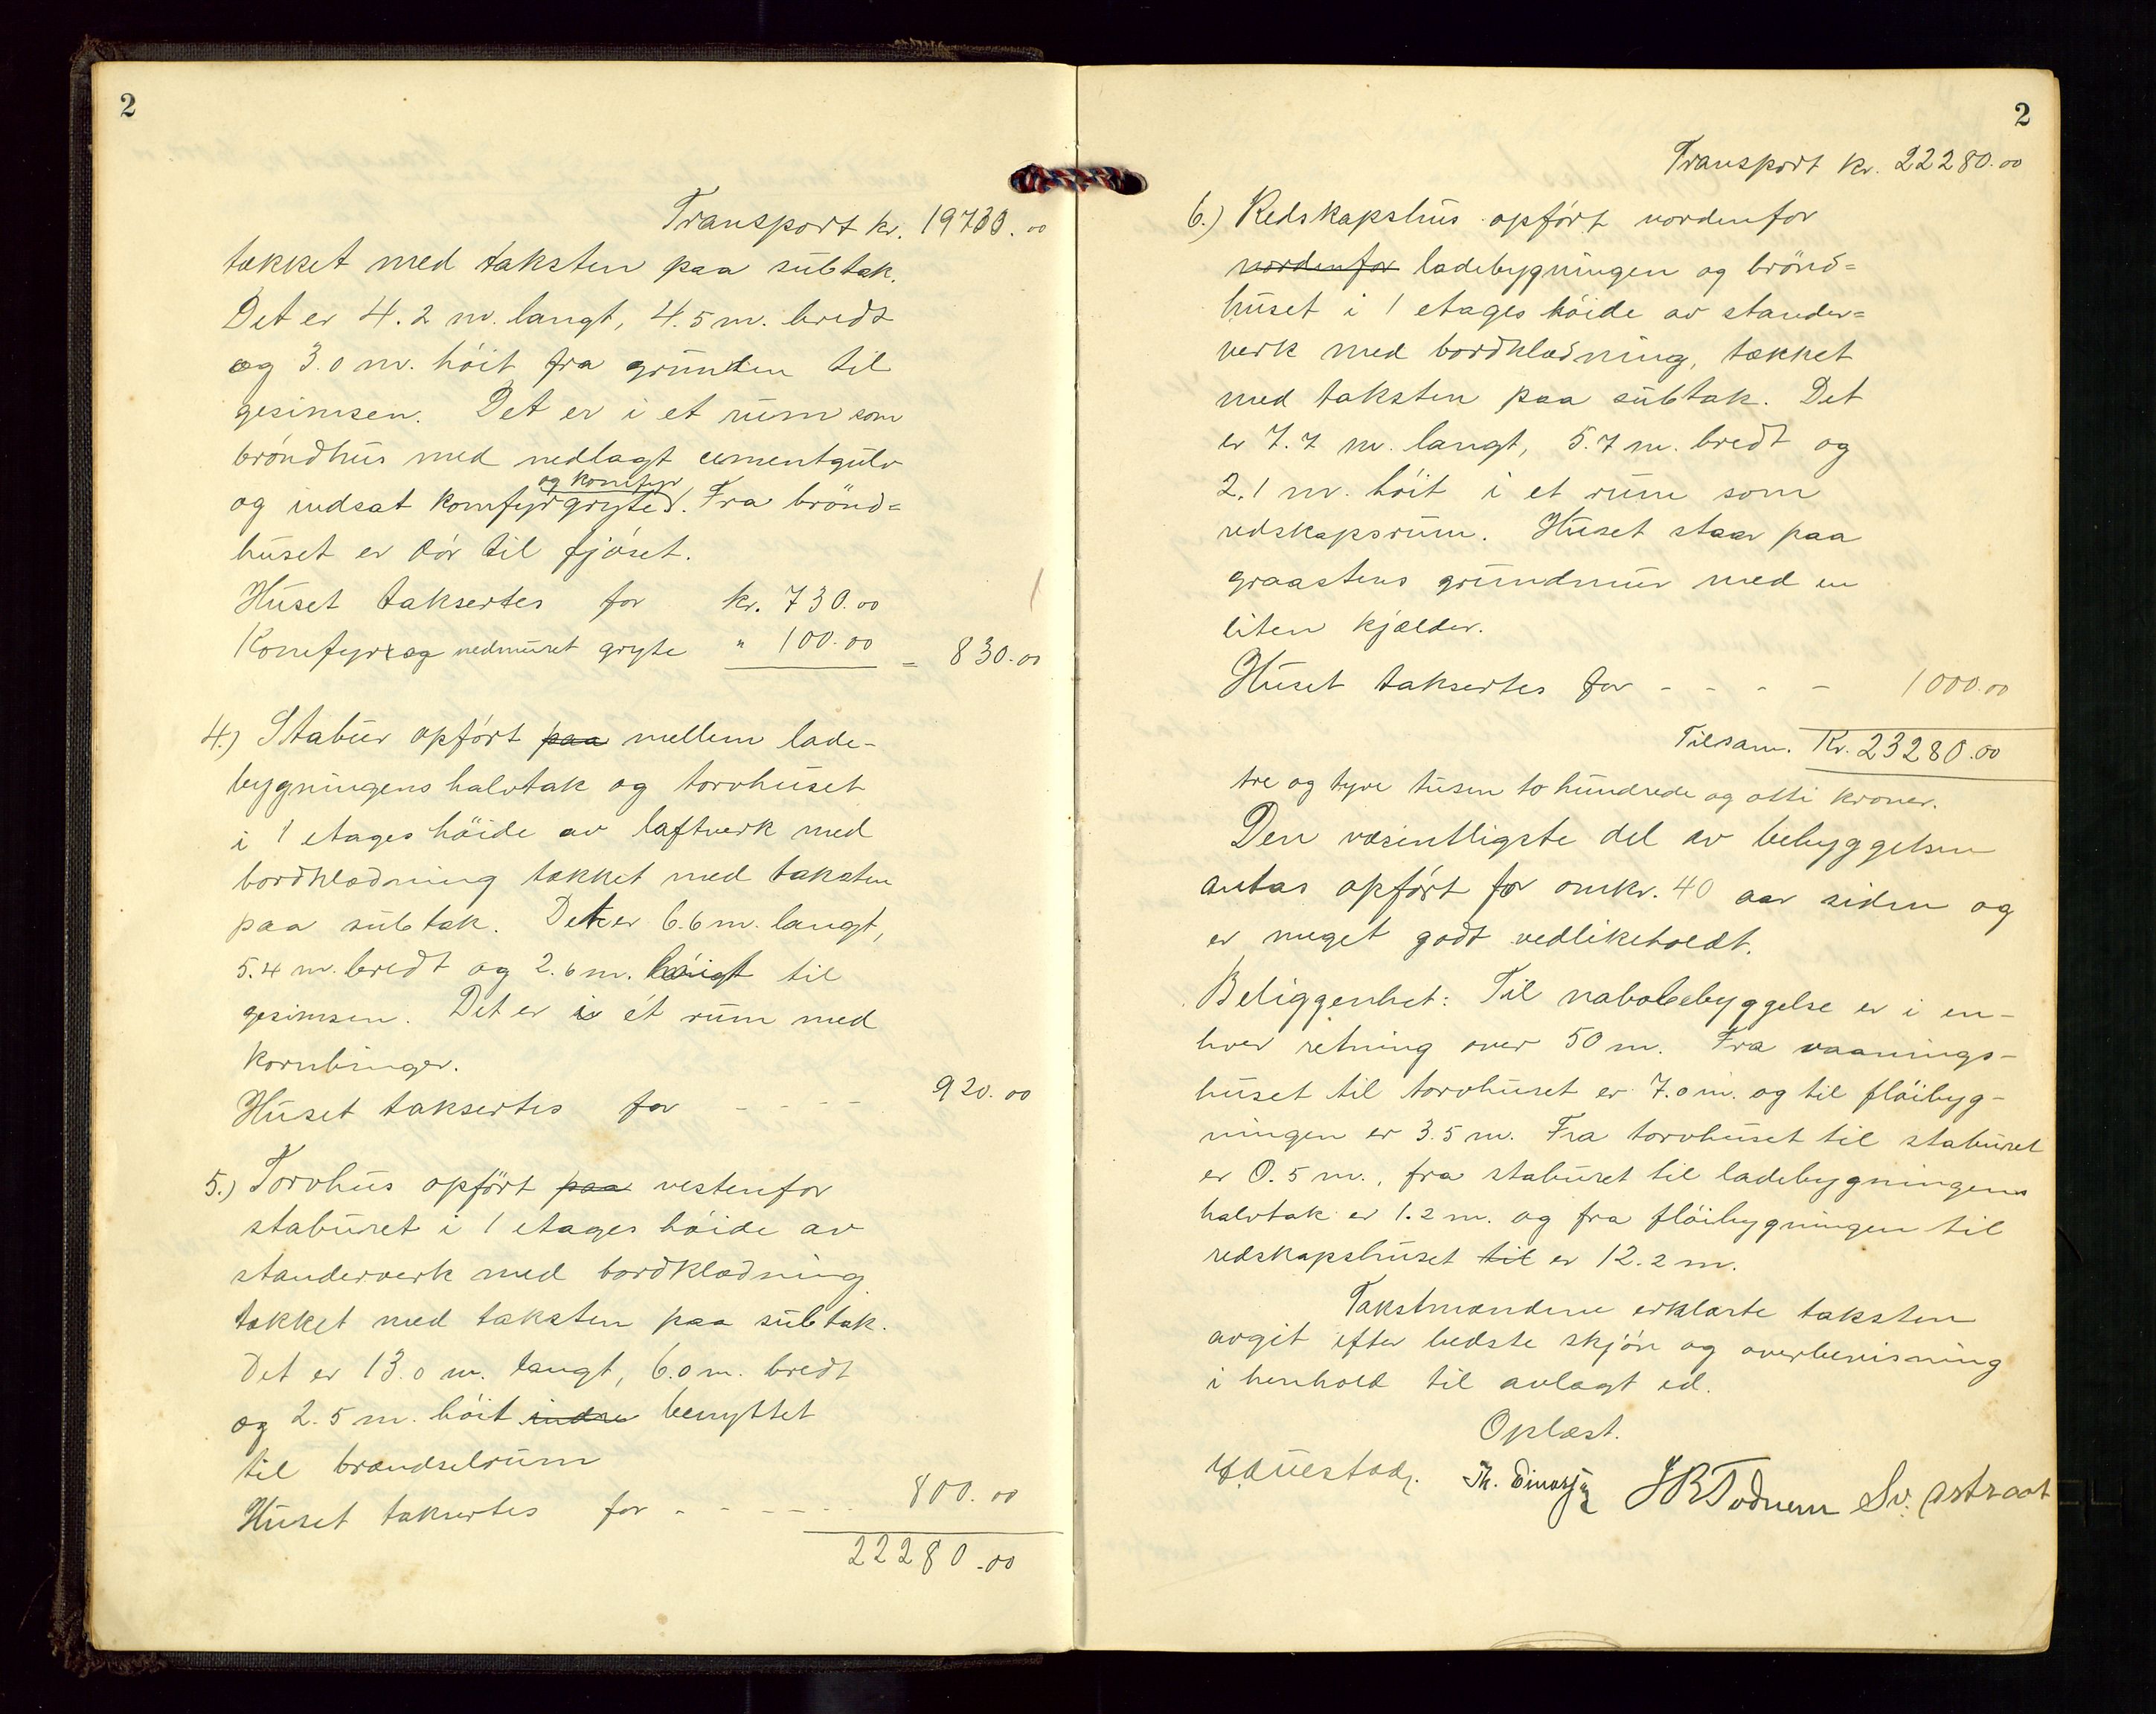 2
Transport kr. 19730.00
tækket med taksten paa sutak.
Det er 4.2 m. langt, 4.5 m. bredt
og 3.0 m. höit fra grunden til
gesimsen. Det er i et rum som
bröndhus med nedlagt cementgulv
og komfyr
og indsat komfyrgryte. Fra brönd=
huset er dör til fjöset.
Huset taksertes for kr. 730.00
Komfyr og nedmuret gryte " 100.00 = 830.00
4.) Stabur opfört paa mellem lade-
bygningens halvtak og torvhuset
i 1 etages höide av laftverk med
bordklædning tækket med taksten
paa sutak. Det er 6.6 m. langt,
5.4 m. bredt og 2.6 m. höigt til
gesimsen. Det er i ét rum med
kornbinger.
Huset taksertes for - - - - 920.00
5.) Torvhus opfört paa vestenfor
staburet i 1 etages höide av
standerverk med bordklædning
tækket med taksten paa sutak.
Det er 13.0 m. langt, 6.0 m. bredt
og 2.5 m. höit indre benyttet
til brændselrum
Huset taksertes for - - - - - 800.00
22280.00
2
Transport kr. 22280.00
6.) Redskapshus opfört nordenfor
nordenfor ladebygningen og brönd=
huset i 1 etages höide av stander=
verk med bordklædning, tækket
med taksten paa sutak. Det
er 7.7 m. langt, 5.7 m. bredt og
2.1 m. höit i et rum som
redskapsrum. Huset staar paa
graastens grundmur med en
liten kjælder.
Huset taksertes for - - - - 1000.00
Tilsam. Kr. 23280.00
tre og tyve tusen to hundrede og otti kroner.
Den væsentligste del av bebyggelsen
antas opfört for omkr. 40 aar siden og
er meget godt vedlikeholdt.
Beliggenhet: Til nabobebyggelse er i en-
hver retning over 50 m. Fra vaanings-
huset til torvhuset er 7.0 m. og til flöibyg-
ningen er 3.5 m. Fra torvhuset til staburet
er 0.5 m., fra staburet til ladebygningens
halvtak er 1.2 m. og fra flöibygningen til
redskapshuset til er 12.2 m.
Takstmændene erklærte taksten
avgit efter bedste skjön og overbevisning
i henhold til avlagt ed.
Oplæst.
Th. JBTodnem Sv. Astraat